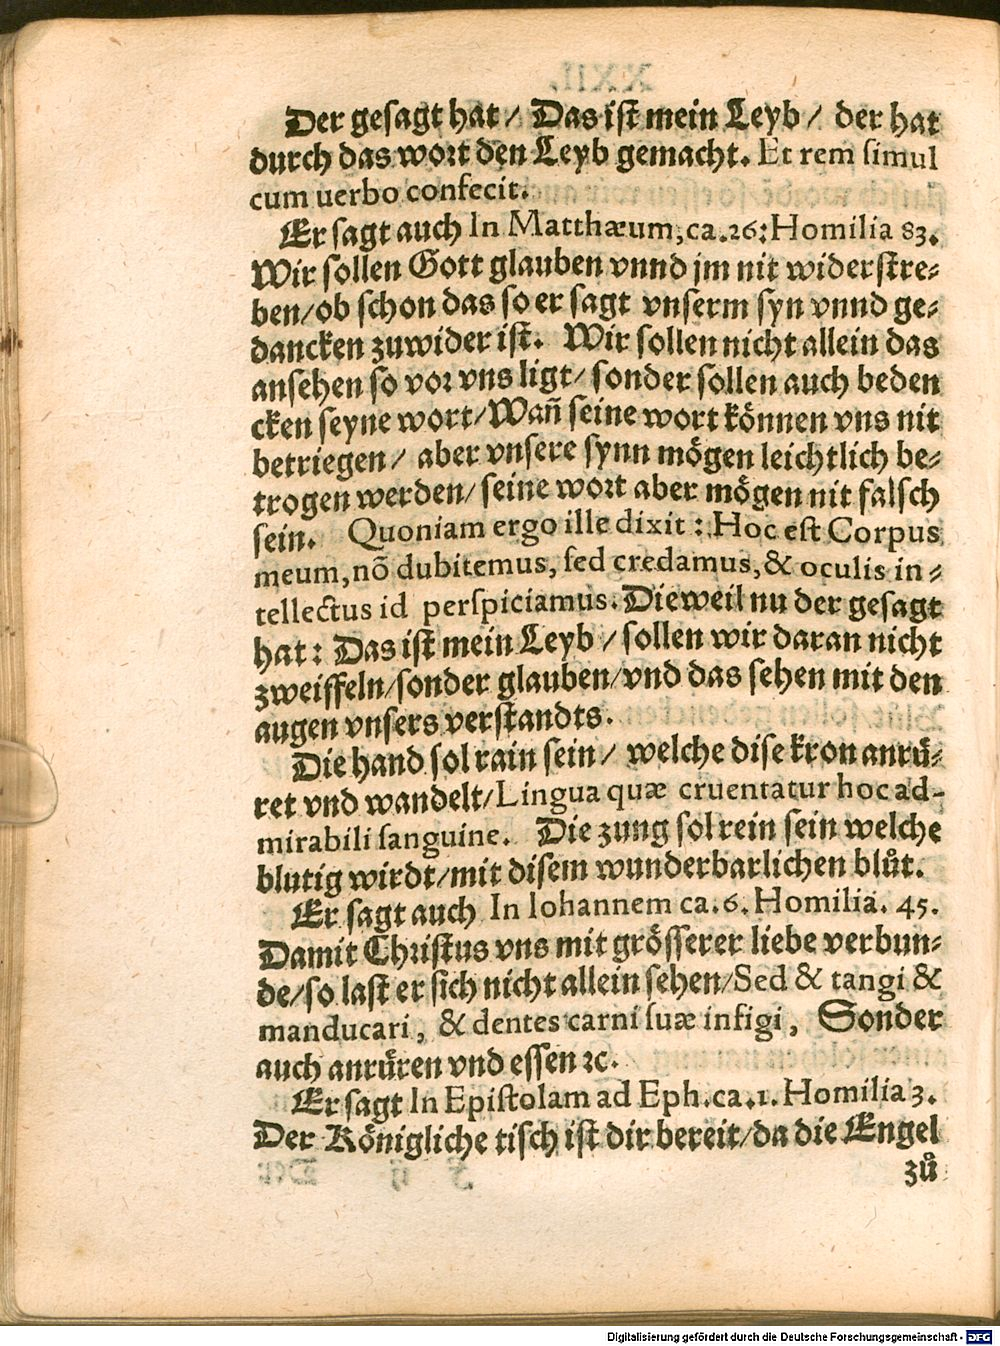 Der gesagt hat / Das ist mein Leyb / der hat
durch das wort den Leyb gemacht. Et rem simul
cum uerbo confecit.
Er sagt auch In Matthæum, ca.26: Homilia 83.
Wir sollen Gott glauben vnnd jm nit widerstre-
ben/ob schon das so er sagt vnserm syn vnnd ge-
dancken zuwider ist. Wir sollen nicht allein das
ansehen so vor vns ligt/ sonder sollen auch beden
cken seyne wort/Wañ seine wort können vns nit
betriegen / aber vnsere synn mögen leichtlich be-
trogen werden/ seine wort aber mögen nit falsch
sein. Quoniam ergo ille dixit : Hoc est Corpus
meum, nõ dubitemus, sed credamus, & oculis in-
tellectus id perspiciamus. Dieweil nu der gesagt
hat : Das ist mein Leyb / sollen wir daran nicht
zweiffeln/sonder glauben/vnd das sehen mit den
augen vnsers verstandts.
Die hand sol rain sein / welche dise kron anrü-
ret vnd wandelt/Lingua quæ cruentatur hoc ad-
mirabili sanguine. Die zung sol rein sein welche
blutig wirdt/mit disem wunderbarlichen blůt.
Er sagt auch In Iohannem ca.6. Homiliä. 45.
Damit Christus vns mit grösserer liebe verbun-
de/so last er sich nicht allein sehen/Sed & tangi &
manducari, & dentes carni suæ infigi, Sonder
auch anrüren vnd essen ꝛc.
Er sagt In Epistolam ad Eph.ca.1. Homilia 3.
Der Königliche tisch ist dir bereit/da die Engel
zů
Digitalisierung gefördert durch die Deutsche Forschungsgemeinschaft - DFG